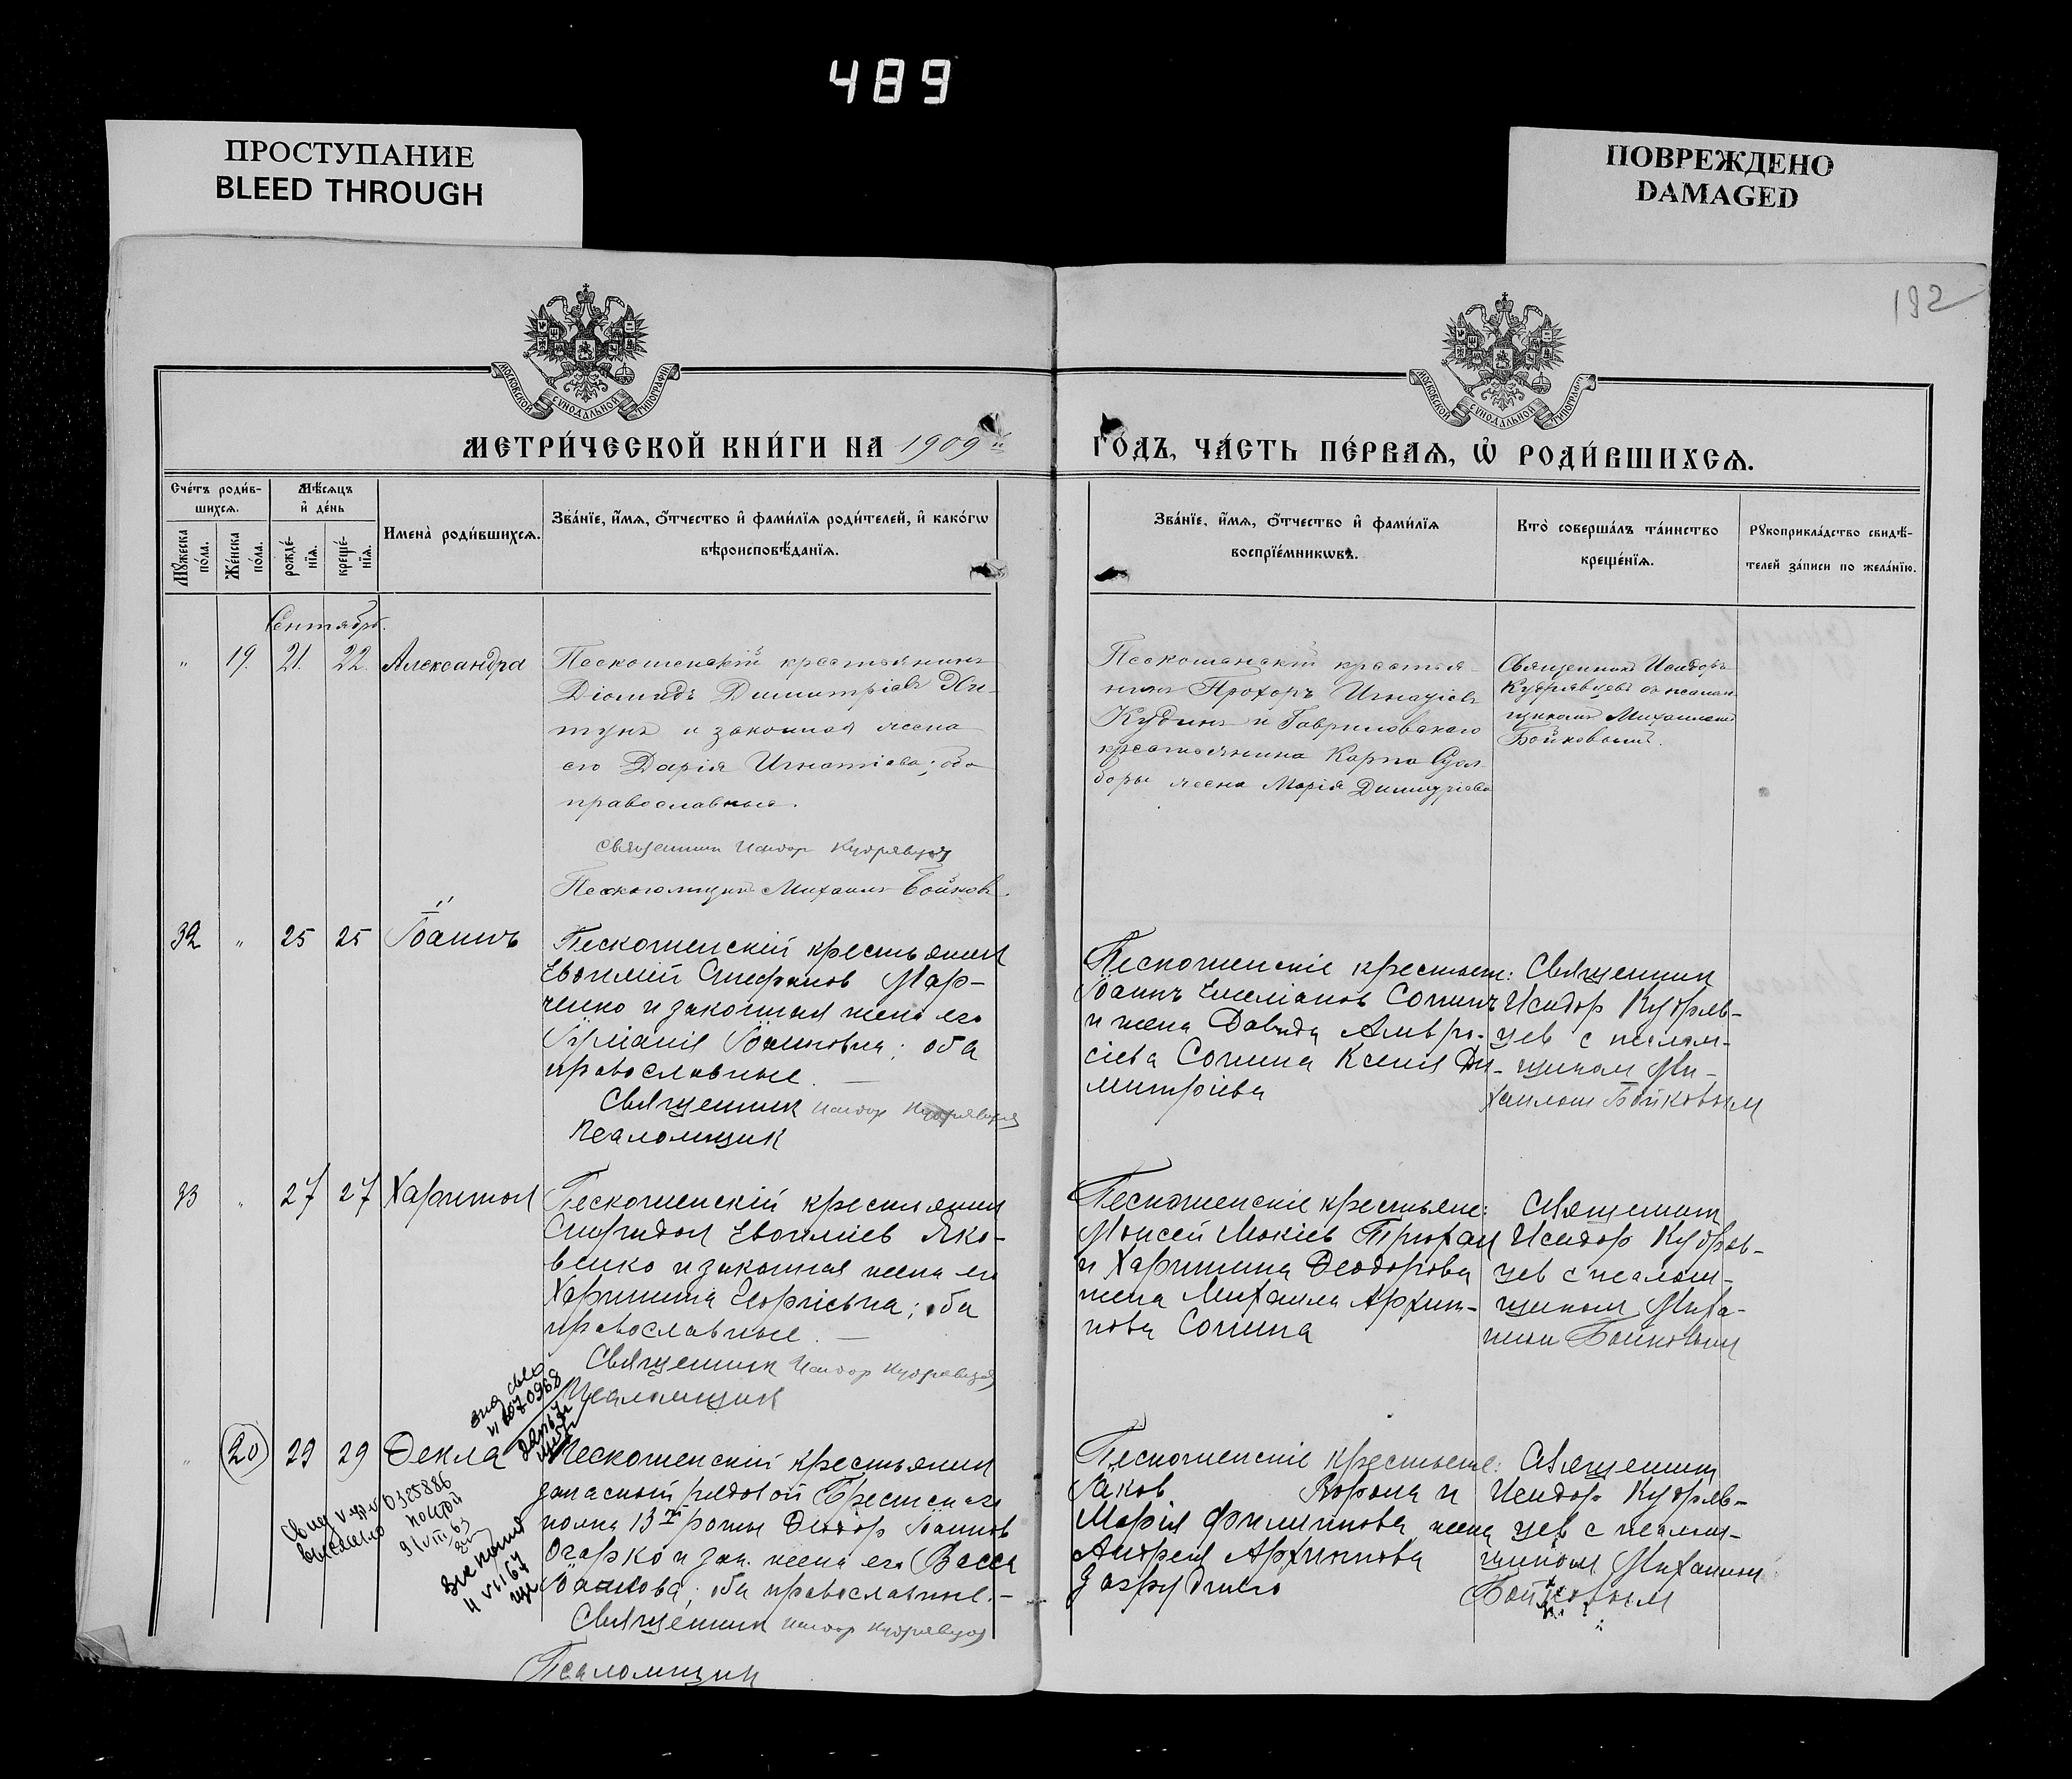 489
ПРОСТУПАНИЕ
BLEED THROUGH
ПОВРЕЖДЕНО
DAMAGED
192
МОСКОВСКОЙ СѴНОДАЛЬНОЙ ТИПОГРАФІИ
МОСКОВСКОЙ СѴНОДАЛЬНОЙ ТИПОГРАФІИ
МЕТРИ́ЧЕСКОЙ КНИ́ГИ НА 1909й
ГО́ДЪ, ЧА́СТЬ ПЕ́РВАѦ, Ѡ҆ РОДИ́ВШИХСѦ.
Сче́тъ роди́в-
шихсѧ.
Мꙋ́жеска по́ла.
Же́нска по́ла.
Мѣ́сѧцъ
и҆ де́нь
рожде́-
нїѧ.
креще́-
нїѧ.
Имена̀ роди́вшихсѧ.
Зва́нїе, и҆́мѧ, ѻ҆́тчество и҆ фами́лїѧ роди́телей, и҆ како́гѡ
вѣроисповѣ́данїѧ.
Зва́нїе, и҆́мѧ, ѻ҆́тчество и҆ фами́лїѧ
воспрїе́мникѡвъ.
Кто̀ соверша́лъ та́инство
креще́нїѧ.
Рꙋкоприкла́дство свидѣ́-
телей за́писи по жела́нїю.
Сентябрь.
" 19. 21. 22. Александра
Пескошенскій крестьянинъ
Діомидъ Димитріевъ
и законная жена
его Дарія Игнатіева; оба
православные.
Священник Исидор Кудрявцев
Псаломщикъ Михаилъ Бойковъ.
Пескошенскій крестья-
нинъ Прохоръ Игнатіевъ
Кудинъ и Гавриловскаго
крестьянина Карпа
жена Марія Димитріева
Священникъ Исидоръ
Кудрявцевъ съ псалом-
щикомъ Михаиломъ
Бойковымъ.
32 " 25 25 Іоаннъ
Пескошенскій крестьянин
Евфимій Стефанов Мар-
ченко и законная жена его
Іуліанія Іоаннова; оба
православные. —
Священник Исидор Кудрявцев
Псаломщик
Пескошенскіе крестьяне:
Іоаннъ Емеліанов Сопинъ
и жена Давида Амвро-
сіева Сопина Ксенія Ди-
митріева
Священник
Исидор Кудряв-
цев с псалом-
щиком Ми-
хаилом Бойковым
33 " 27 27 Харитон
Пескошенскій крестьянин
Спиридон Евфиміев Яко-
венко и законная жена его
Харитина Георгіевна; оба
православные. —
Священник Исидор Кудрявцев
Псаломщик
Пескошенскіе крестьяне:
Моисей Мокіев Трюхан
и Харитина Феодорова
жена Михаила Архип-
пова Сопина
Священник
Исидор Кудряв-
цев с псалом-
щиком Миха-
илом Бойковым
" 20 29 29 Фекла
Пескошенскій крестьянин
запасный рядовой Брестскаго
полка 13й роты Феодор Іоаннов
Огарко и зак. жена его Васса
; оба православные. —
Священник Исидор Кудрявцев
Псаломщик
Пескошенскіе крестьяне:
Іаков Ворона и
Марія Филиппова жена
Андрея Архиппова
Загруднего
Священник
Исидор Кудряв-
цев с псалом-
щиком Михаилом
Бойковым